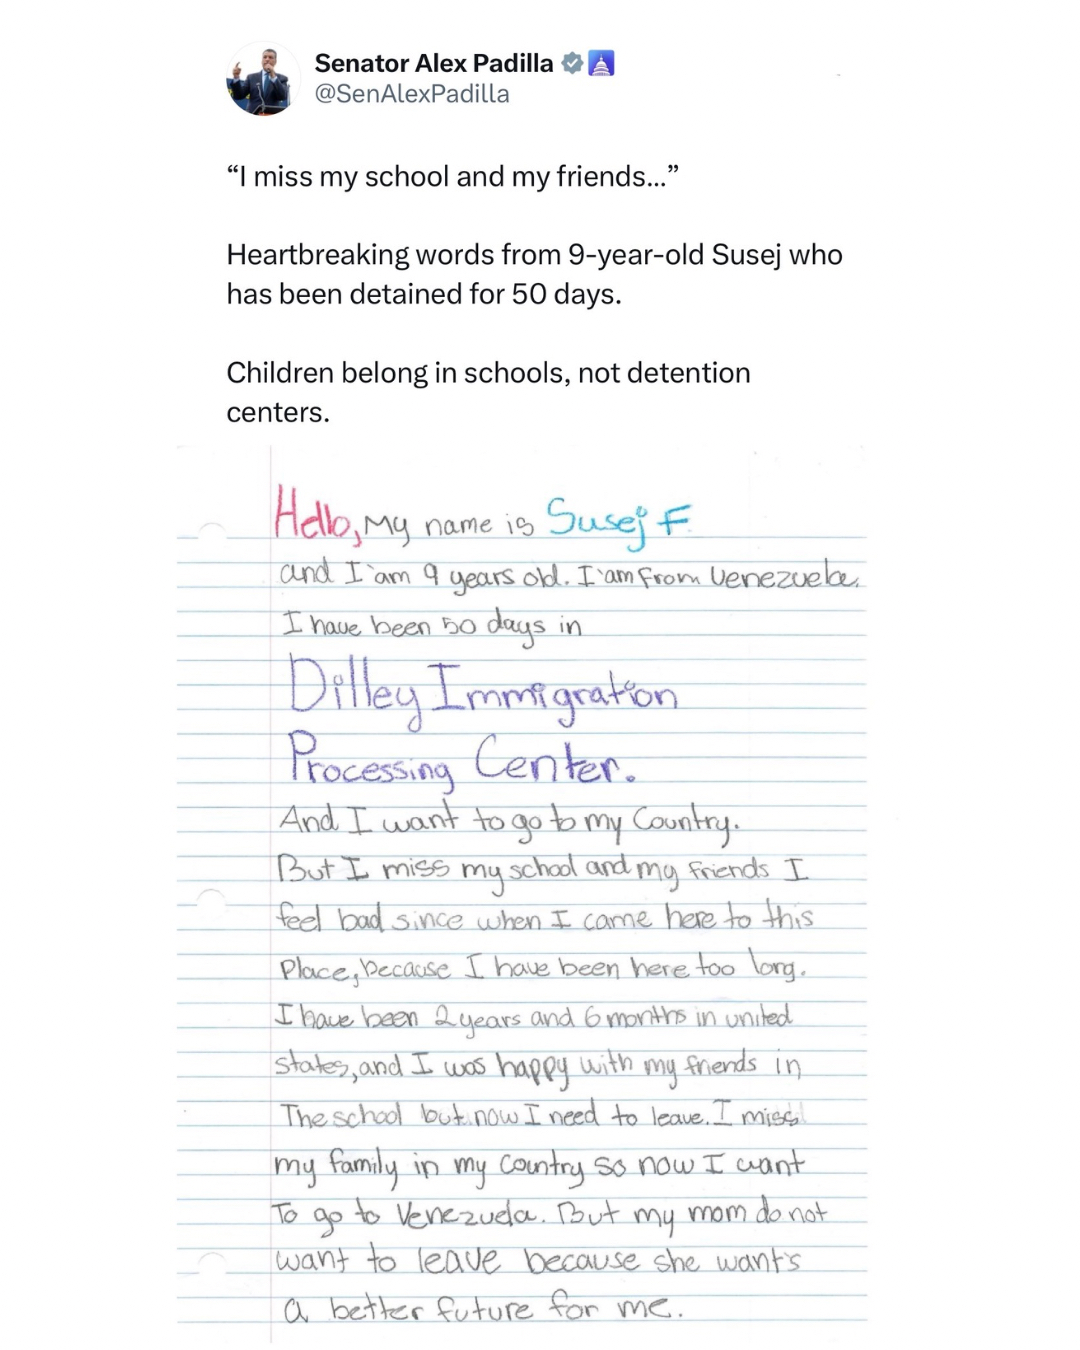 Senator Alex Padilla
@SenAlexPadilla
“I miss my school and my friends...”
Heartbreaking words from 9-year-old Susej who
has been detained for 50 days.
Children belong in schools, not detention
centers.
Hello, My name is Susej F
and I'am 9 years old. I'am from Venezuela.
I have been 50 days in
Dilley Immigration
Processing Center.
And I want to go to my Country.
But I miss my school and my friends I
feel bad since when I came here to this
Place, because I have been here too long.
I have been 2 years and 6 months in united
states, and I was happy with my friends in
The school but now I need to leave. I miss
my family in my Country so now I want
To go to Venezuela. But my mom do not
want to leave because she want's
a better future for me.